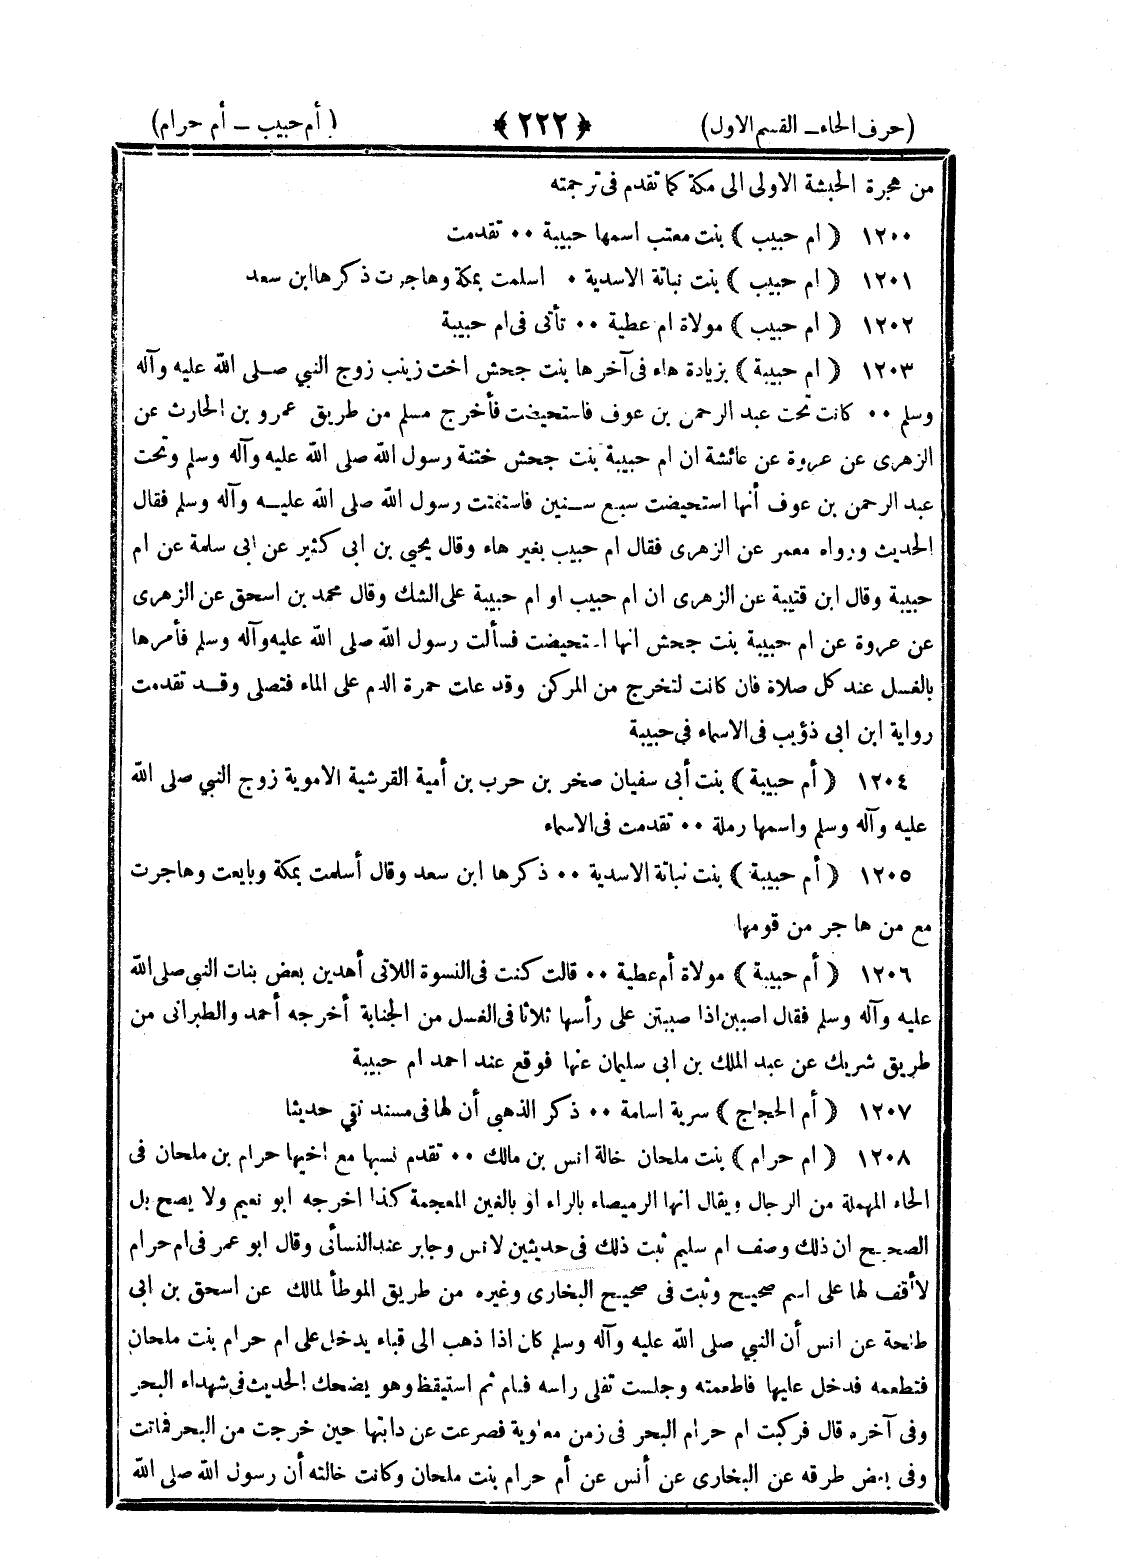 (حرف الحاء ـ القسم الاول) ﴿ ٢٢٢ ﴾ (أم حبيب ـ أم حرام)
من هجرة الحبشة الاولى الى مكة كما تقدم فى ترجمته
١٢٠٠ ﴿ ام حبيب ﴾ بنت معتب اسمها حبيبة ٠٠ تقدمت
١٢٠١ ﴿ ام حبيب ﴾ بنت نباتة الاسدية ٠ اسلمت بمكة وهاجرت ذكرها ابن سعد
١٢٠٢ ﴿ ام حبيب ﴾ مولاة ام عطية ٠٠ تأتى فى ام حبيبة
١٢٠٣ ﴿ ام حبيبة ﴾ بزيادة هاء فى آخرها بنت جحش اخت زينب زوج النبي صلى الله عليه وآله
وسلم ٠٠ كانت تحت عبد الرحمن بن عوف فاستحيضت فأخرج مسلم من طريق عمرو بن الحارث عن
الزهرى عن عروة عن عائشة ان ام حبيبة بنت جحش ختنة رسول الله صلى الله عليه وآله وسلم وتحت
عبد الرحمن بن عوف أنها استحيضت سبع سنين فاستفتت رسول الله صلى الله عليه وآله وسلم فقال
الحديث ورواه معمر عن الزهرى فقال ام حبيب بغير هاء وقال يحيى بن ابى كثير عن ابى سلمة عن ام
حبيبة وقال ابن قتيبة عن الزهرى ان ام حبيب او ام حبيبة على الشك وقال محمد بن اسحق عن الزهرى
عن عروة عن ام حبيبة بنت جحش انها استحيضت فسألت رسول الله صلى الله عليه وآله وسلم فأمرها
بالغسل عند كل صلاة فان كانت لتخرج من المركن وقد علت حمرة الدم على الماء فتصلى وقد تقدمت
رواية ابن ابى ذؤيب فى الاسماء فى حبيبة
١٢٠٤ ﴿ أم حبيبة ﴾ بنت أبى سفيان صخر بن حرب بن أمية القرشية الاموية زوج النبي صلى الله
عليه وآله وسلم واسمها رملة ٠٠ تقدمت فى الاسماء
١٢٠٥ ﴿ أم حبيبة ﴾ بنت نباتة الاسدية ٠٠ ذكرها ابن سعد وقال أسلمت بمكة وبايعت وهاجرت
مع من هاجر من قومها
١٢٠٦ ﴿ أم حبيبة ﴾ مولاة أم عطية ٠٠ قالت كنت فى النسوة اللاتى أهدين بعض بنات النبى صلى الله
عليه وآله وسلم فقال اصببن اذا صببتن على رأسها ثلاثا فى الغسل من الجنابة أخرجه أحمد والطبرانى من
طريق شريك عن عبد الملك بن ابى سليمان عنها فوقع عند احمد ام حبيبة
١٢٠٧ ﴿ أم الحجاج ﴾ سرية اسامة ٠٠ ذكر الذهبى أن لها فى مسند بقي حديثا
١٢٠٨ ﴿ ام حرام ﴾ بنت ملحان خالة انس بن مالك ٠٠ تقدم نسبها مع اخيها حرام بن ملحان فى
الحاء المهملة من الرجال ويقال انها الرميصاء بالراء او بالغين المعجمة كذا اخرجه ابو نعيم ولا يصح بل
الصحيح ان ذلك وصف ام سليم ثبت ذلك فى حديثين لانس وجابر عند النسائى وقال ابو عمر فى ام حرام
لا أقف لها على اسم صحيح وثبت فى صحيح البخارى وغيره من طريق الموطأ لمالك عن اسحق بن ابى
طلحة عن انس أن النبي صلى الله عليه وآله وسلم كان اذا ذهب الى قباء يدخل على ام حرام بنت ملحان
فتطعمه فدخل عليها فاطعمته وجلست تفلى راسه فنام ثم استيقظ وهو يضحك الحديث فى شهداء البحر
وفى آخره قال فركبت ام حرام البحر فى زمن معاوية فصرعت عن دابتها حين خرجت من البحر فماتت
وفى بعض طرقه عن البخارى عن أنس عن أم حرام بنت ملحان وكانت خالته أن رسول الله صلى الله